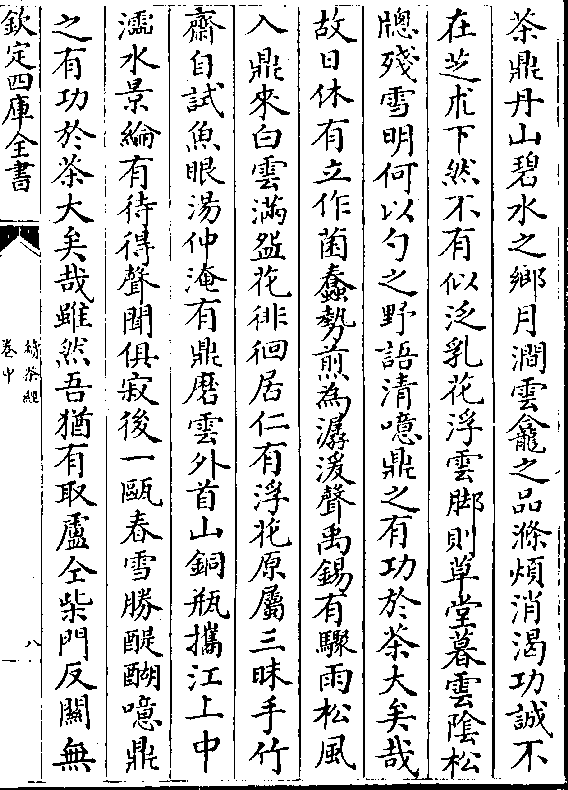 茶鼎丹山碧水之鄉月澗雲龕之品滌煩消渴功誠不
在芝朮下然不有似泛乳花浮雲脚則草堂暮雲陰松
牕殘雪明何以勺之野語清噫鼎之有功於茶大矣哉
故日休有立作菌蠢勢煎為潺湲聲禹錫有驟雨松風
入鼎來白雲滿盌花徘徊居仁有浮花原屬三昧手竹
齋自試魚眼湯仲淹有鼎磨雲外首山銅瓶攜江上中
濡水景綸有待得聲聞俱寂後一甌春雪勝醍醐噫鼎
之有功於茶大矣哉雖然吾猶有取盧仝柴門反關無
欽定四庫全書
續茶經
卷中
八